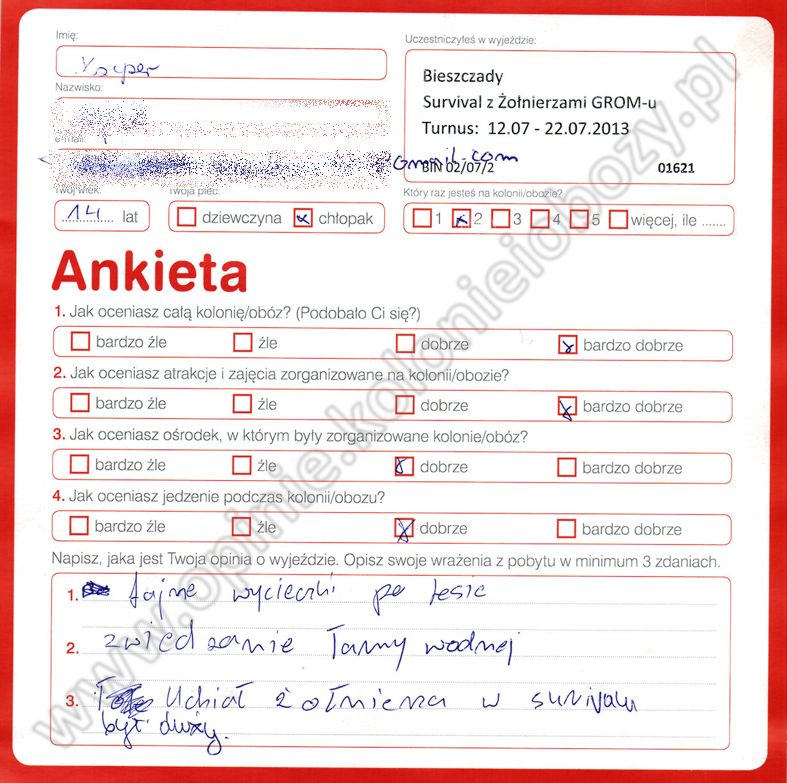 Imię:
Kacper
Uczestniczyłeś w wyjeździe:
Bieszczady
Survival z Żołnierzami GROM-u
Turnus: 12.07 - 22.07.2013
BIN 02/07/2 01621
Nazwisko:
e-mail:
gmail.com
Twój wiek:
14 lat
Twoja płeć:
dziewczyna chłopak
Który raz jesteś na kolonii/obozie?
1 2 3 4 5 więcej, ile .......
Ankieta
1. Jak oceniasz całą kolonię/obóz? (Podobało Ci się?)
bardzo źle źle dobrze bardzo dobrze
2. Jak oceniasz atrakcje i zajęcia zorganizowane na kolonii/obozie?
bardzo źle źle dobrze bardzo dobrze
3. Jak oceniasz ośrodek, w którym były zorganizowane kolonie/obóz?
bardzo źle źle dobrze bardzo dobrze
4. Jak oceniasz jedzenie podczas kolonii/obozu?
bardzo źle źle dobrze bardzo dobrze
Napisz, jaka jest Twoja opinia o wyjeździe. Opisz swoje wrażenia z pobytu w minimum 3 zdaniach.
1. fajne wycieczki po lesie
2. zwiedzanie Tamy wodnej
3. Udział żołnierza w survivalu
był duży.
www.opinie.kolonieiobozy.pl